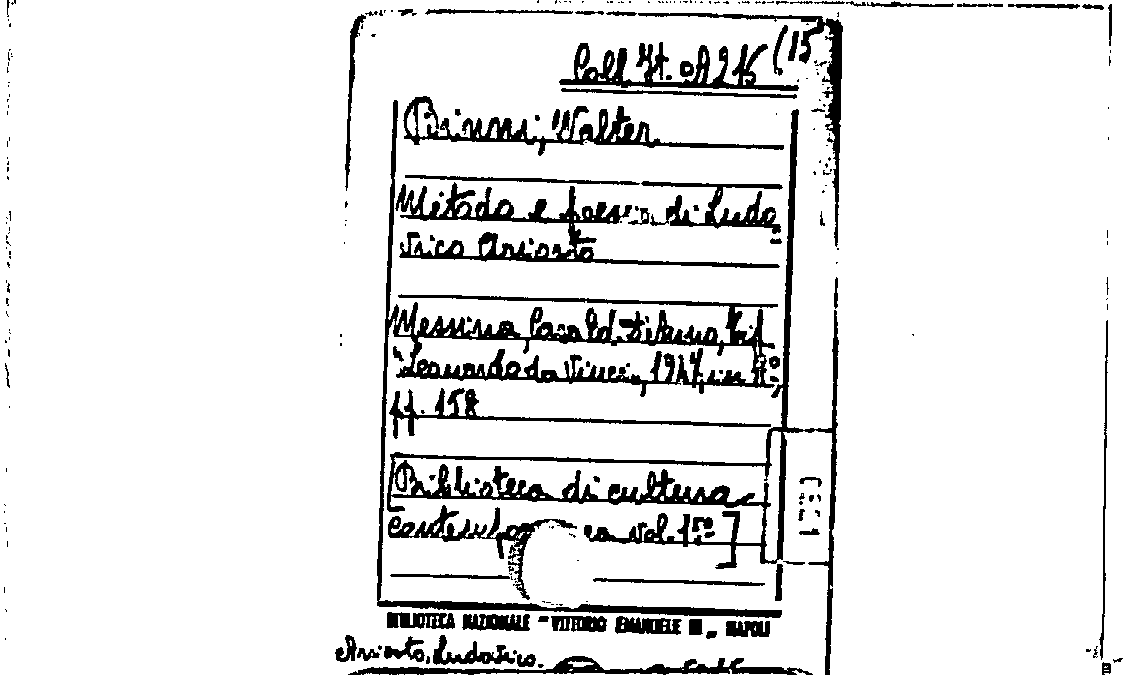 Coll. It. A 215 (15
Binni, Walter
Metodo e poesia di Ludo=
vico Ariosto
Messina, Casa Ed. D'Anna, Tip.
"Leonardo da Vinci", 1947, in 8°,
pp. 158
[Biblioteca di cultura
contempo ea vol. 15°]
BIBLIOTECA NAZIONALE "VITTORIO EMANUELE III" NAPOLI
Ariosto, Ludovico.